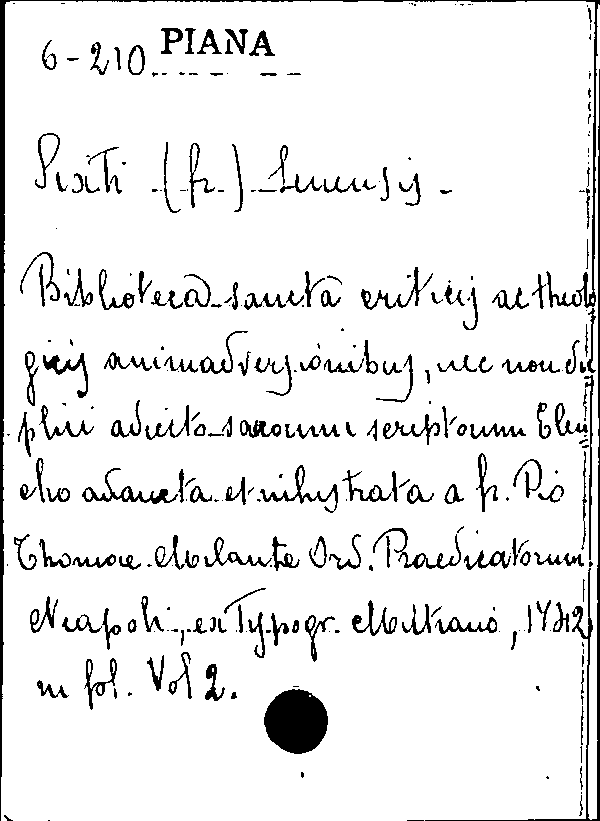 6-210 PIANA
Sixti (fr.) Senensis -
Biblioteca sancta criticis ac theolo
gicis animadversionibus, nec non du
plici adiecto sacrorum scriptorum Elen
cho adaucta et illustrata a fr. Pio
Thomae Milante Ord. Praedicatorum
Neapoli, ex Typogr. Mutiano, 1742
in fol. Vol 2.